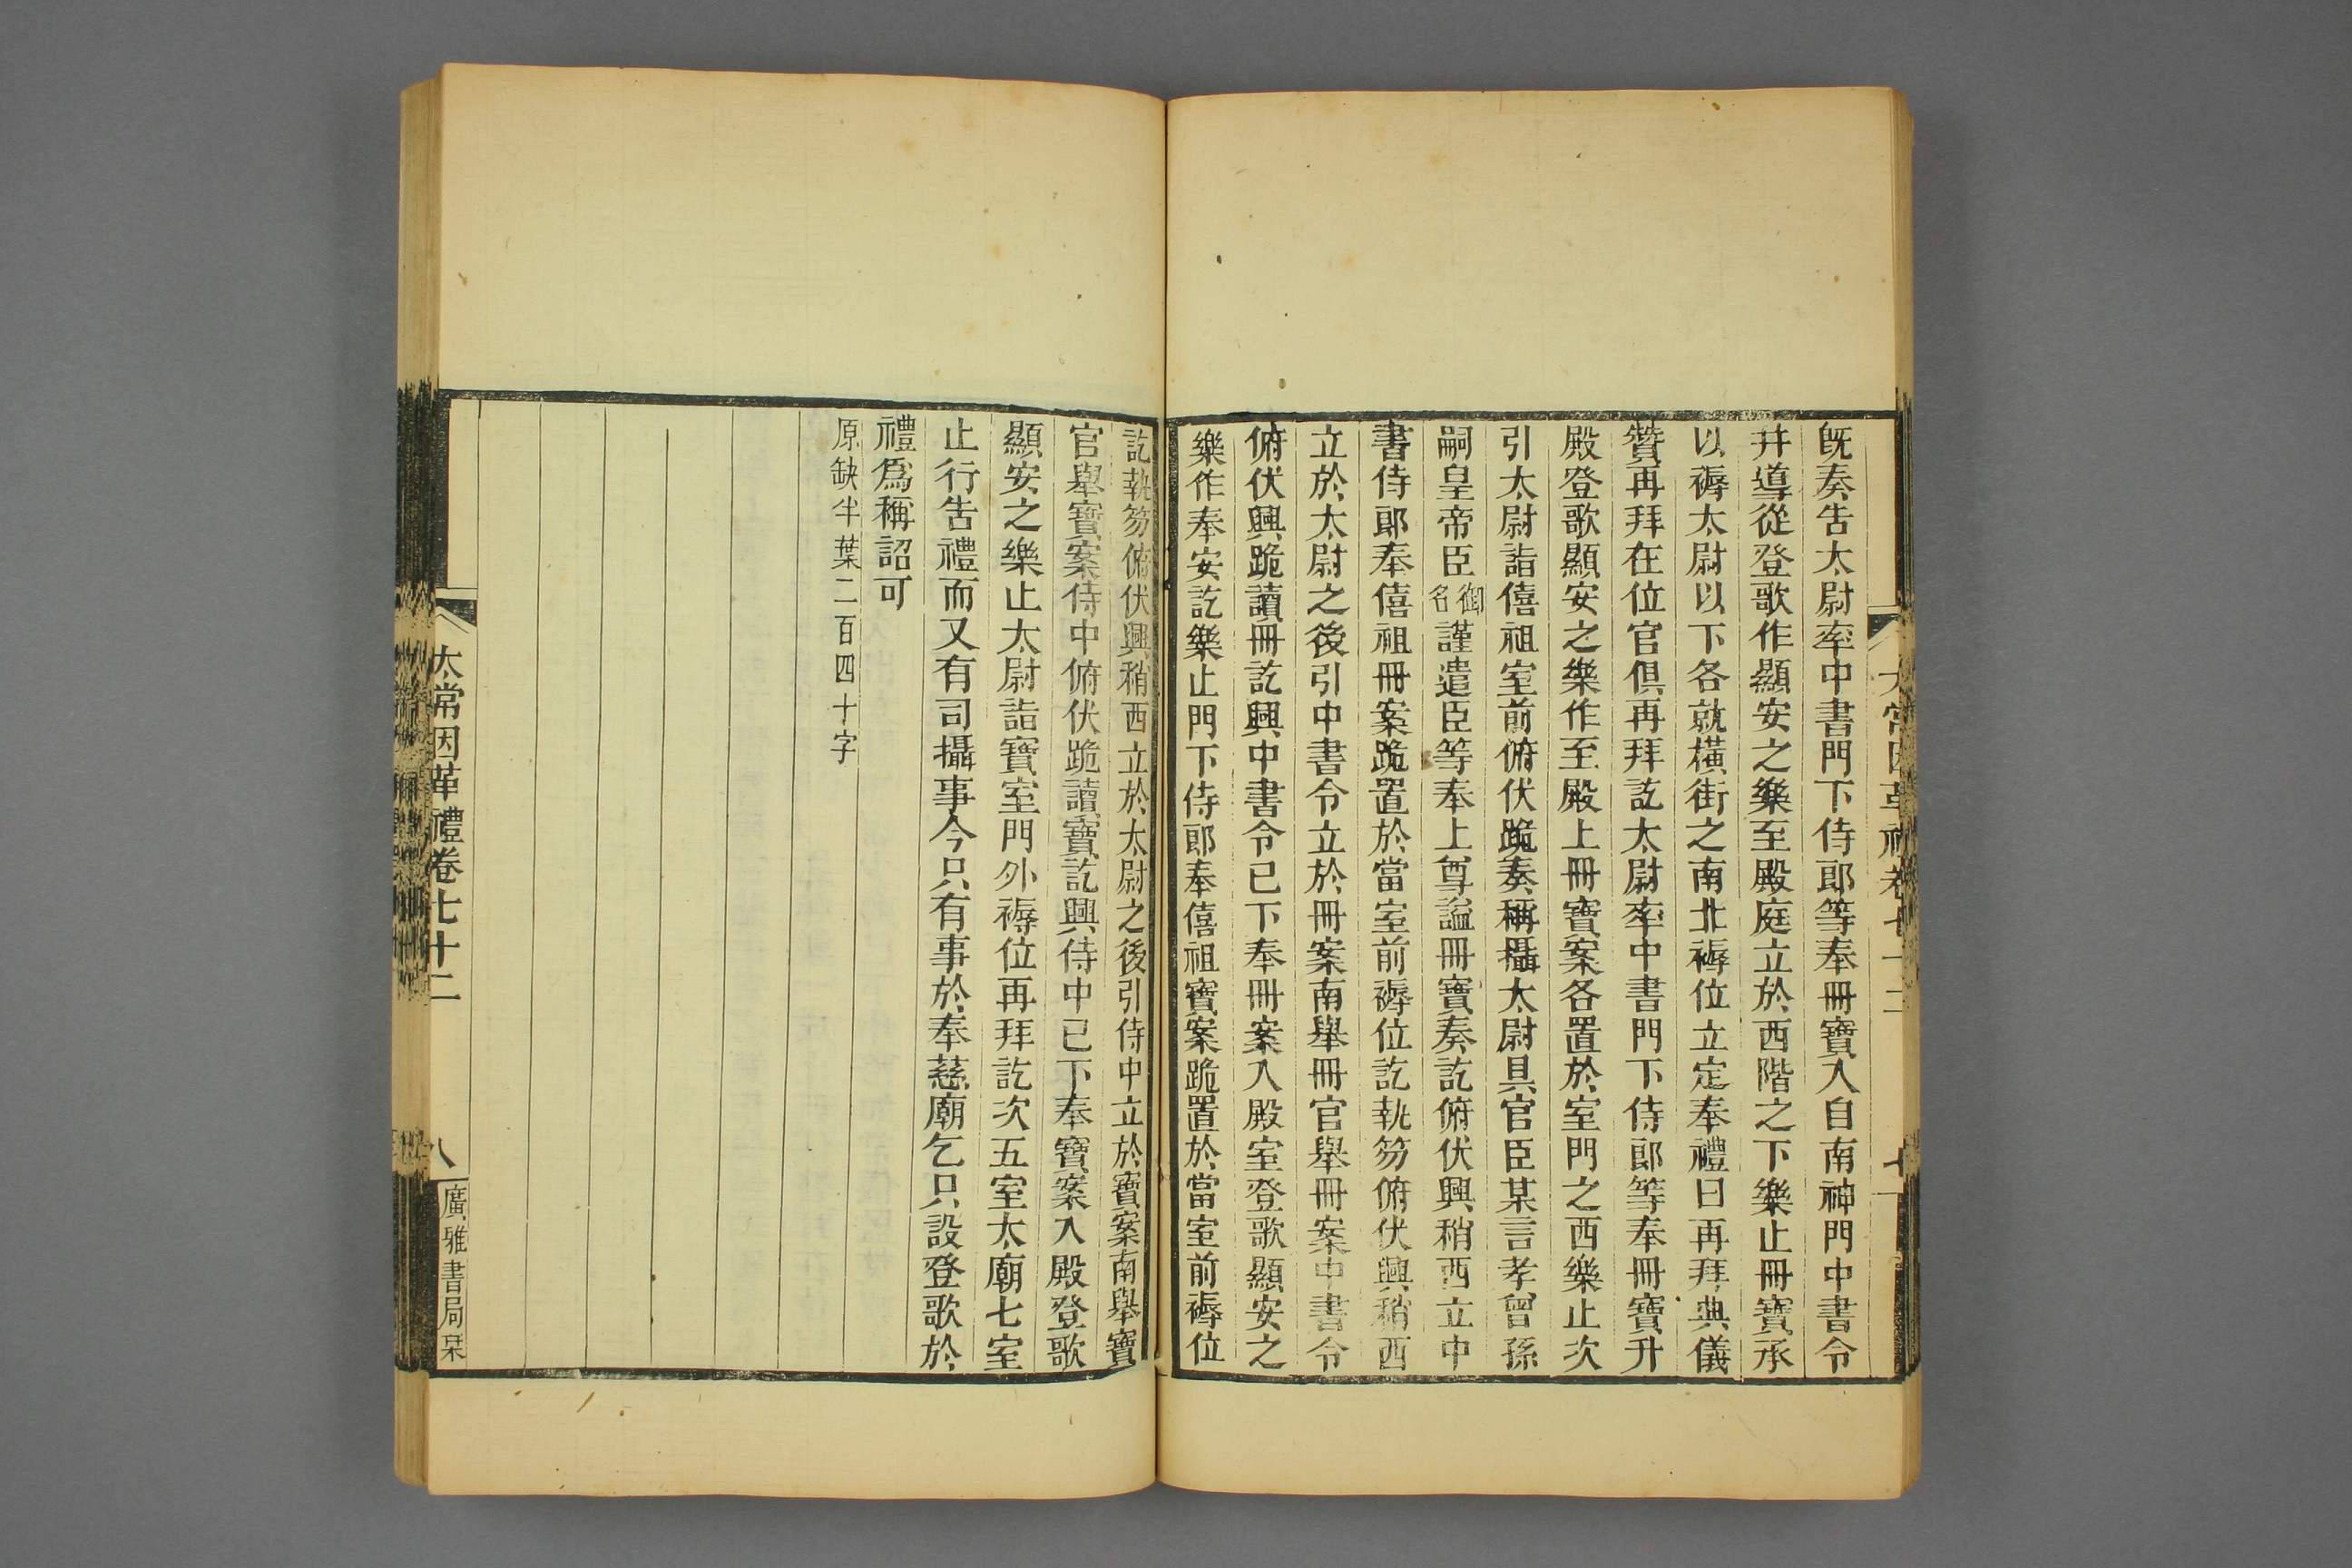 太常因革禮卷七十二
七
既奏告太尉率中書門下侍郎等奉冊寶入自南神門中書令
并導從登歌作顯安之樂至殿庭立於西階之下樂止冊寶承
以褥太尉以下各就橫街之南北褥位立定奉禮曰再拜典儀
贊再拜在位官俱再拜訖太尉率中書門下侍郎等奉冊寶升
殿登歌顯安之樂作至殿上冊寶案各置於室門之西樂止次
引太尉詣僖祖室前俯伏跪奏稱攝太尉具官臣某言孝曾孫
嗣皇帝臣御名謹遣臣等奉上尊謚冊寶奏訖俯伏興稍西立中
書侍郎奉僖祖冊案跪置於當室前褥位訖執笏俯伏興稍西
立於太尉之後引中書令立於冊案南舉冊官舉冊案中書令
俯伏興跪讀冊訖興中書令已下奉冊案入殿室登歌顯安之
樂作奉安訖樂止門下侍郎奉僖祖寶案跪置於當室前褥位
訖執笏俯伏興稍西立於太尉之後引侍中立於寶案南舉寶
官舉寶案侍中俯伏跪讀寶訖興侍中已下奉寶案入殿登歌
顯安之樂止太尉詣寶室門外褥位再拜訖次五室太廟七室
止行告禮而又有司攝事今只有事於奉慈廟乞只設登歌於
禮爲稱詔可
原缺半葉二百四十字
太常因革禮卷七十二
八
廣雅書局栞